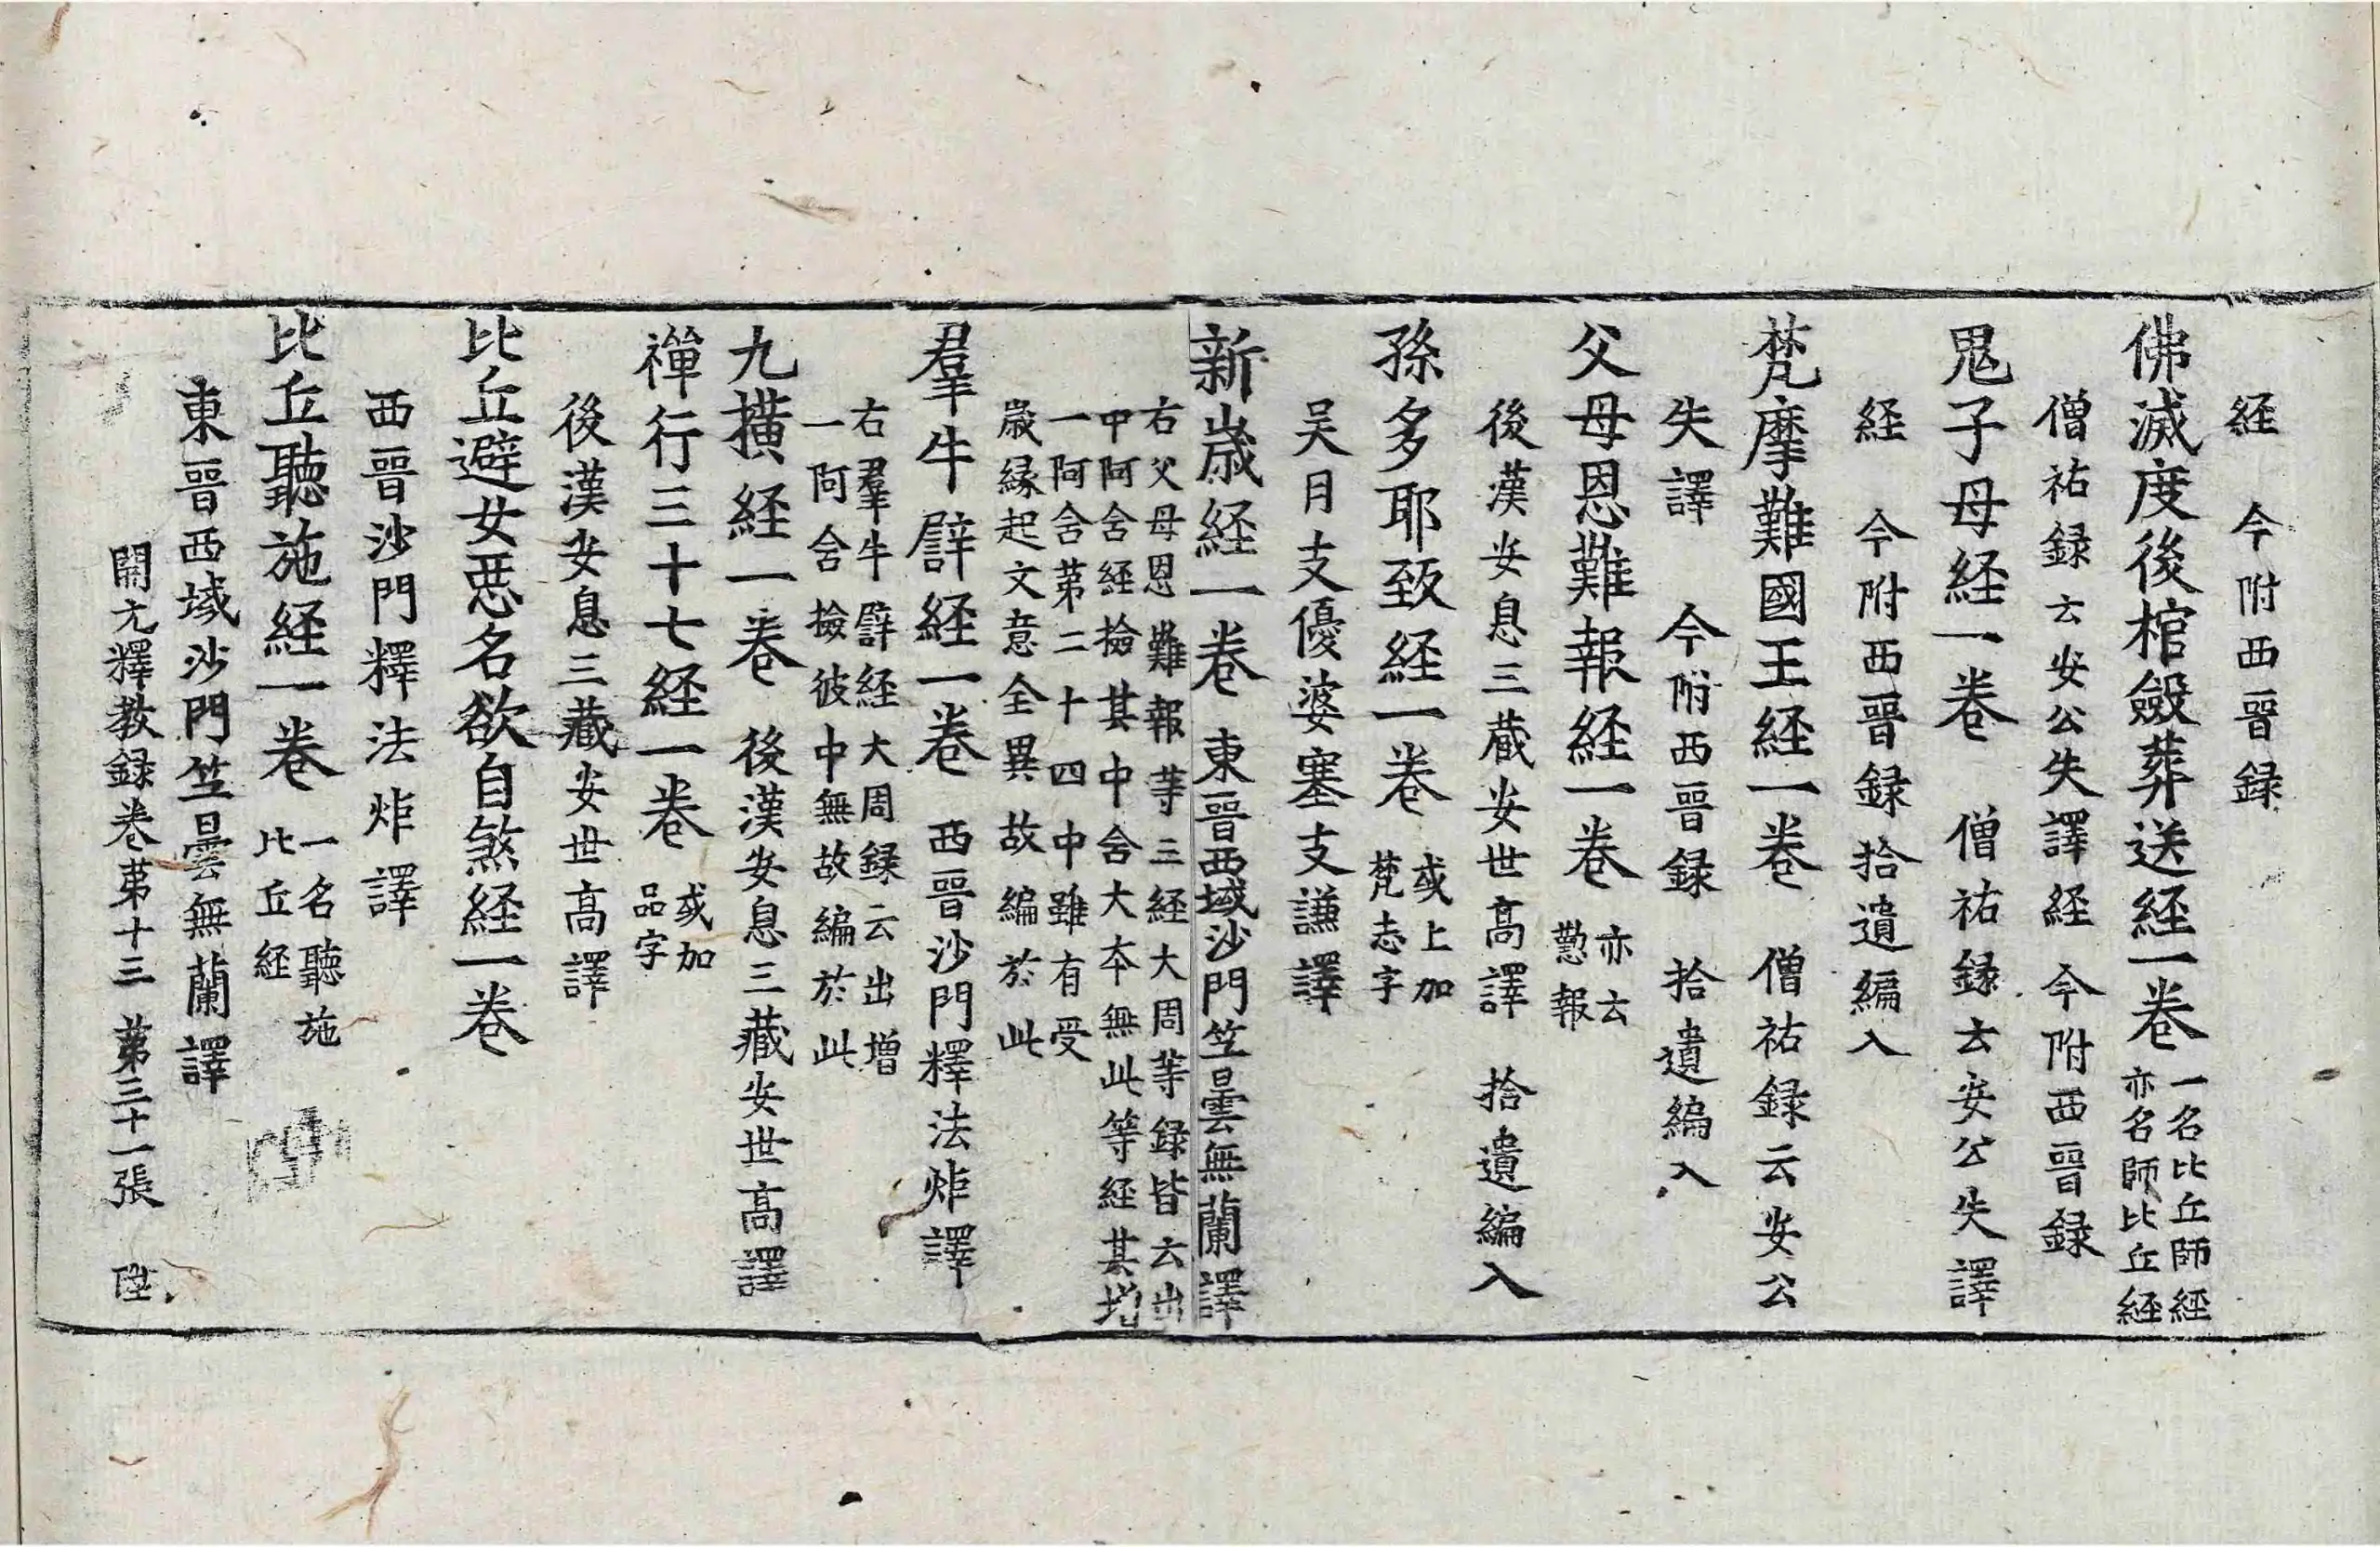 経　今附西晉録
佛滅度後棺斂葬送経一卷
一名比丘師経
亦名師比丘経
僧祐録云安公失譯経　今附西晉録
鬼子母経一卷　僧祐録云安公失譯
経　今附西晉録拾遺編入
梵摩難國王経一卷　僧祐録云安公
失譯　今附西晉録　拾遺編入
父母恩難報経一卷
亦云
懃報
後漢安息三藏安世高譯　拾遺編入
孫多耶致経一卷
或上加
梵志字
吴月支優婆塞支謙譯
新歳経一卷　東晉西域沙門竺曇無蘭譯
右父母恩難報等三経大周等録皆云出
中阿含経撿其中含大本無此等経其增
一阿含第二十四中雖有受
歳縁起文意全異故編於此
羣牛譬経一卷　西晉沙門釋法炬譯
右羣牛譬経大周録云出增
一阿含撿彼中無故編於此
九横経一卷　後漢安息三藏安世高譯
禪行三十七経一卷
或加
品字
後漢安息三藏安世高譯
比丘避女惡名欲自煞経一卷
西晉沙門釋法炬譯
比丘聽施経一卷
一名聽施
比丘経
東晉西域沙門竺曇無蘭譯
開元釋教録卷苐十三　苐三十一張　陞